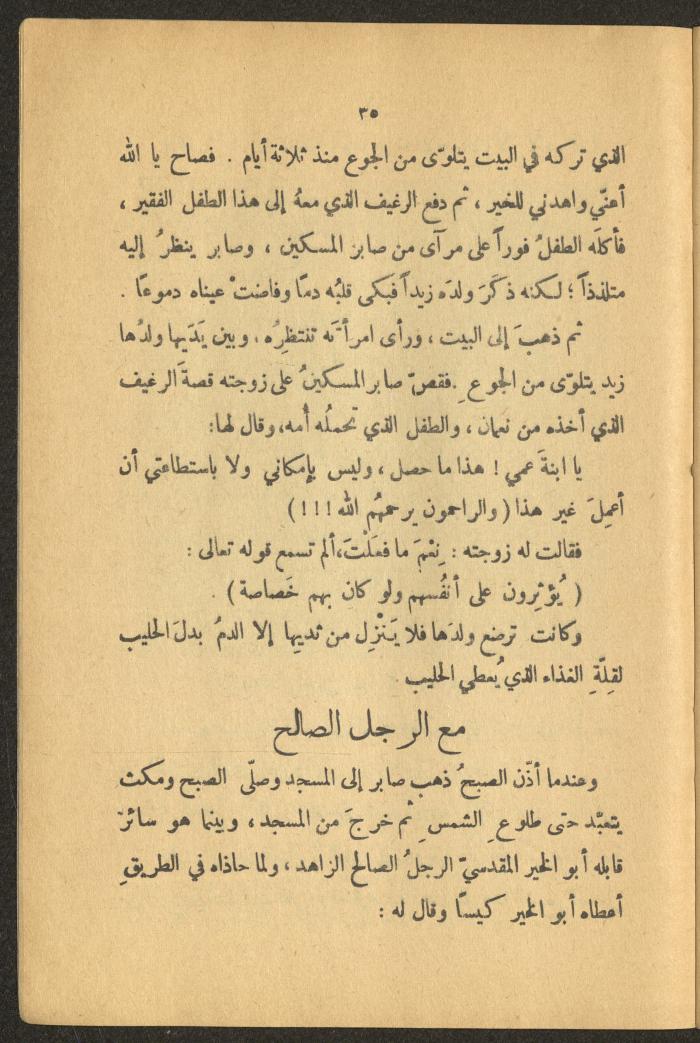 ٣٥
الذي تركه في البيت يتلوّى من الجوع منذ ثلاثة أيام . فصاح يا الله
أعنّي واهدني للخير ، ثم دفع الرغيف الذي معهُ إلى هذا الطفل الفقير ،
فأكلَه الطفلُ فوراً على مرآى من صابر المسكين ، وصابر ينظرُ إليه
متلذذاً ؛ لكنه ذكَرَ ولدَه زيداً فبكى قلبُه دمّا وفاضتْ عيناه دموعًا .
ثم ذهبَ إلى البيت ، ورأى امرأتَه تنتظِرُه ، وبين يَدَيها ولدُها
زيد يتلوّى من الجوعِ . فقصّ صابر المسكينُ على زوجته قصةَ الرغيف
الذي أخذه من نعمان ، والطفل الذي تحملُه أُمه، وقال لها:
يا ابنةَ عمي ! هذا ما حصل ، وليس بإمكاني ولا باستطاعتي أن
أعمِلَ غير هذا ( والراحمون يرحمهُم الله ! ! ! )
فقالت له زوجته : نِعْمَ ما فعَلْتَ، ألم تسمع قوله تعالى :
( يُؤثِرون على أنفُسهم ولو كان بهم خَصاصة ) .
وكانت ترضع ولدَها فلا يَنْزِل من ثديها إلا الدمُ بدلَ الحليب
لقِلّةِ الغذاء الذي يُعطي الحليب .
مع الرجل الصالح
وعندما أذّن الصبحُ ذهب صابر إلى المسجد وصلّى الصبح ومكث
يتعبّد حتى طلوعِ الشمسِ ثم خرجَ من المسجد ، وبينما هو سائرٌ
قابله أبو الخير المقدسيّ الرجلُ الصالح الزاهد ، ولما حاذاه في الطريقِ
أعطاه أبو الخير كيسًا وقال له :